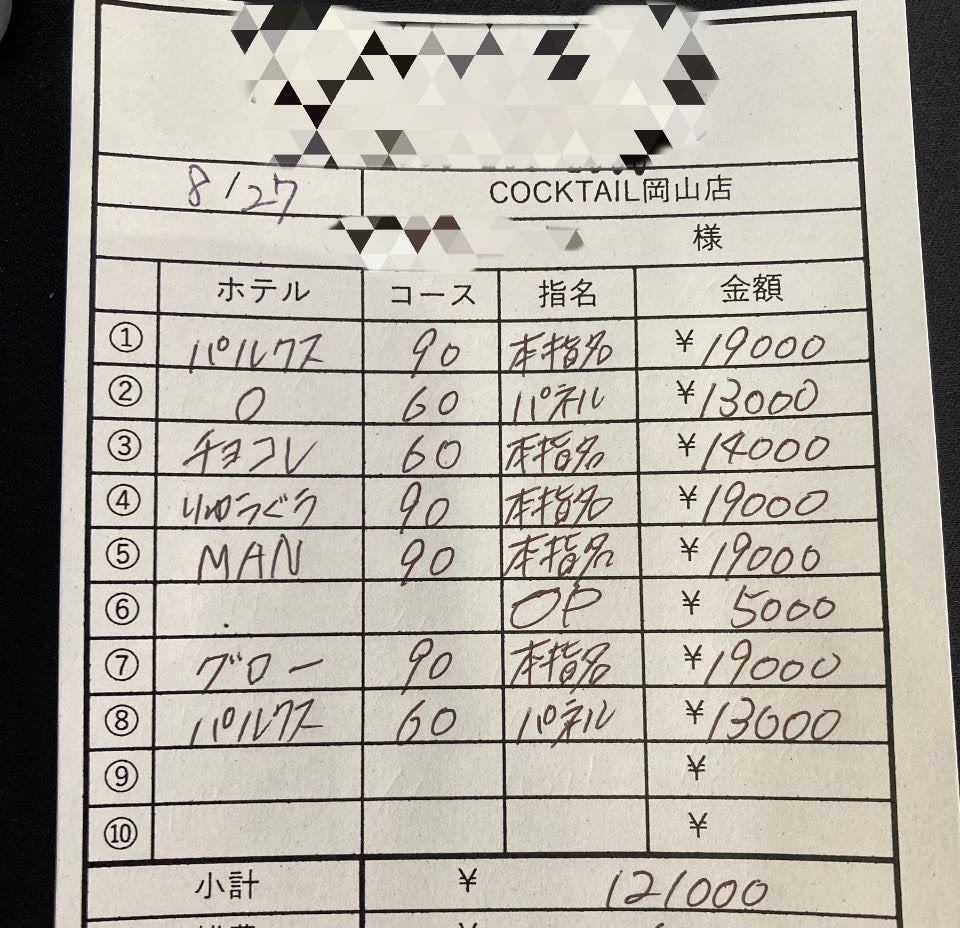 8/27 COCKTAIL岡山店
様
ホテル コース 指名 金額
① パルクス 90 本指名 ¥19000
② O 60 パネル ¥13000
③ チョコレ 60 本指名 ¥14000
④ りゅうぐう 90 本指名 ¥19000
⑤ MAN 90 本指名 ¥19000
⑥ OP ¥5000
⑦ グロー 90 本指名 ¥19000
⑧ パルクス 60 パネル ¥13000
⑨ ¥
⑩ ¥
小計 ¥121000